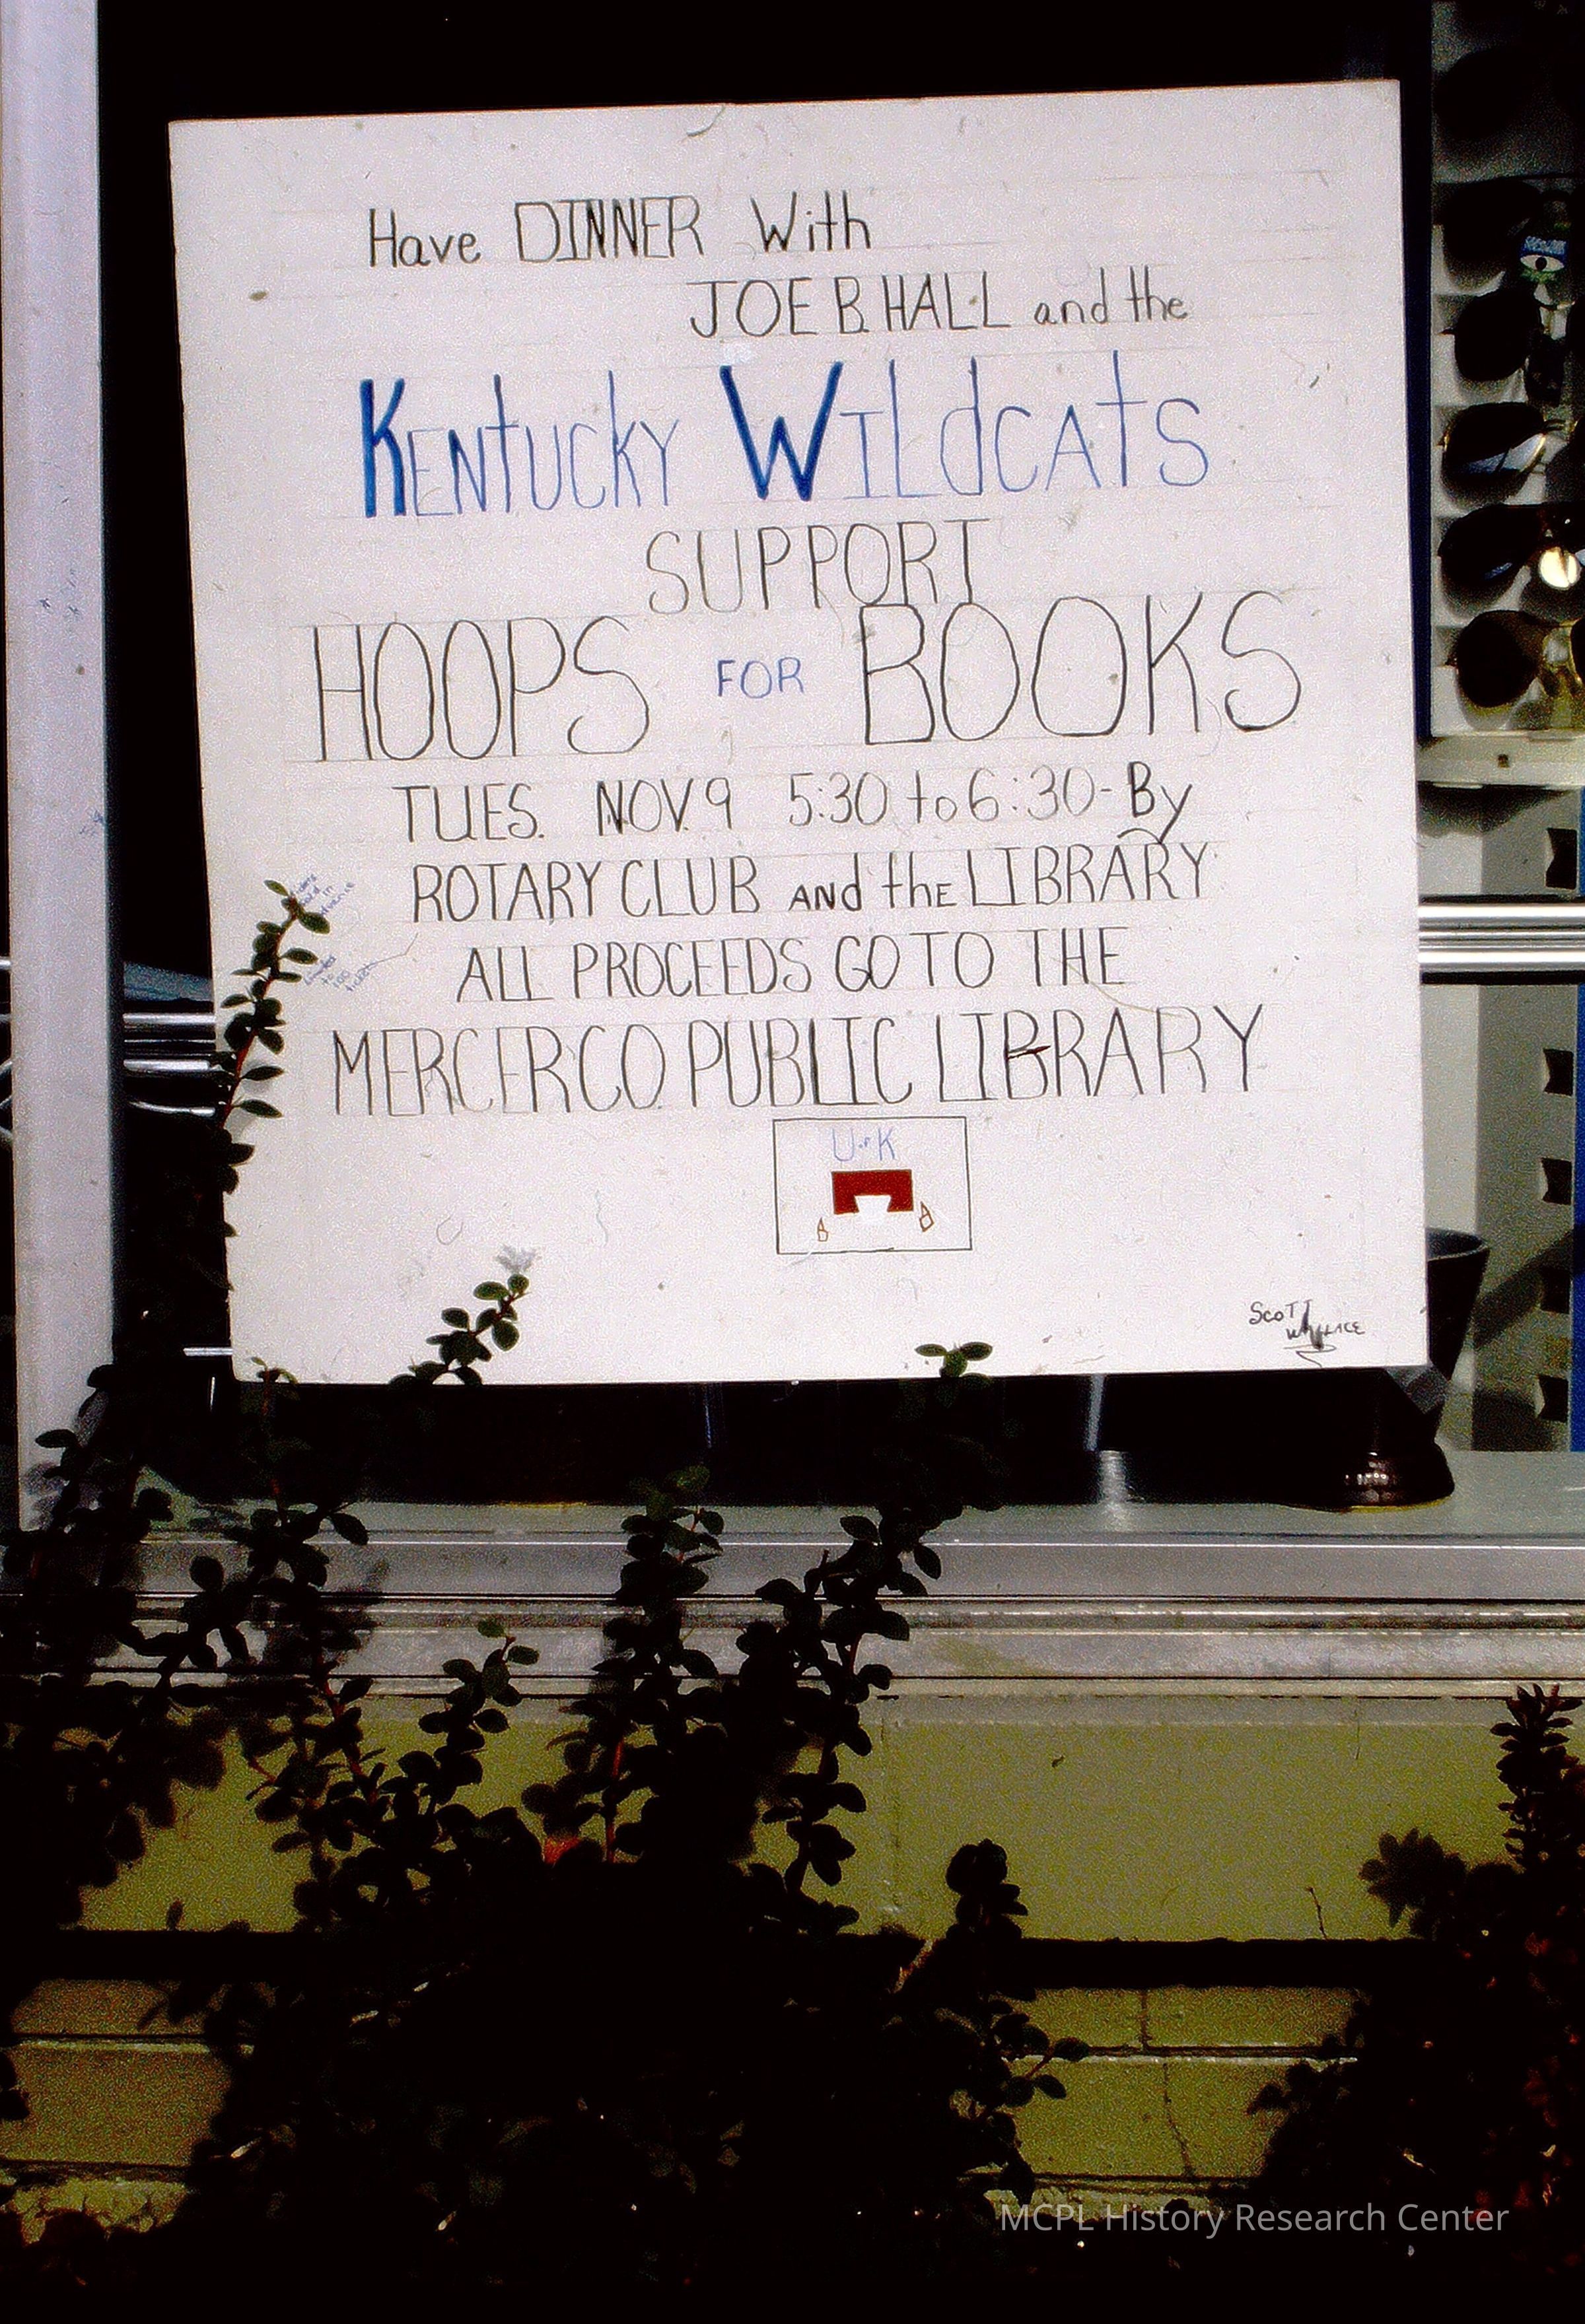 Have DINNER With
JOE B. HALL and the
KENtUCKY WILdCAtS
SUPPORT
HOOPS FOR BOOKS
TUES. NOV. 9 5:30 to 6:30 - By
ROTARY CLUB ANd thE LIBRARY
in
advance
Limited
to
100
tickets
ALL PROCEEDS GO TO THE
MERCER CO. PUBLIC LIBRARY
U of K
SCOTT
WALLACE
MCPL History Research Center